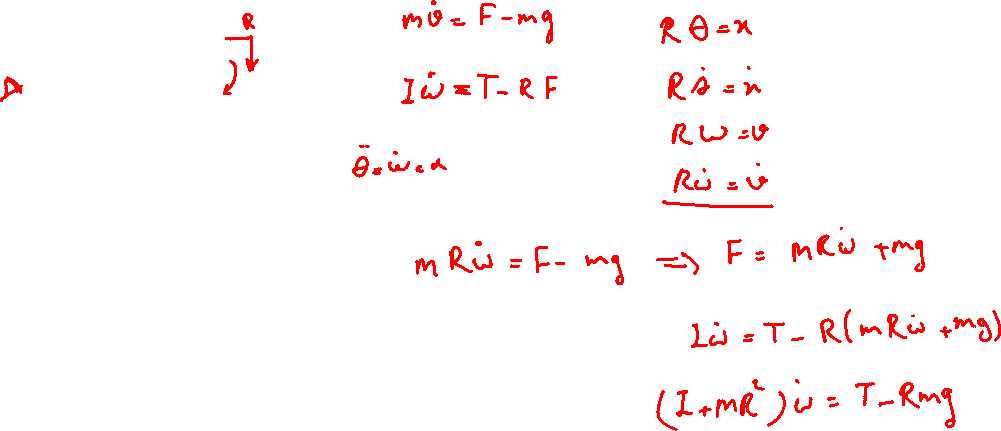 R
m v̇ = F - mg
R θ = x
I ω̇ = T - R F
R θ̇ = ẋ
R ω = v
θ̈ = ω̇ = α
R ω̇ = v̇
m R ω̇ = F - mg ⇒ F = m R ω̇ + mg
I ω̇ = T - R(m R ω̇ + mg)
(I + mR²) ω̇ = T - Rmg